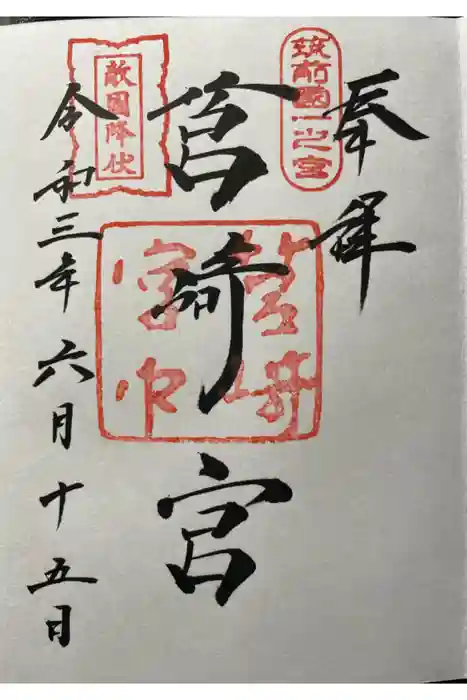 奉拝
筑前國一之宮
筥崎宮
敵國降伏
令和三年六月十五日